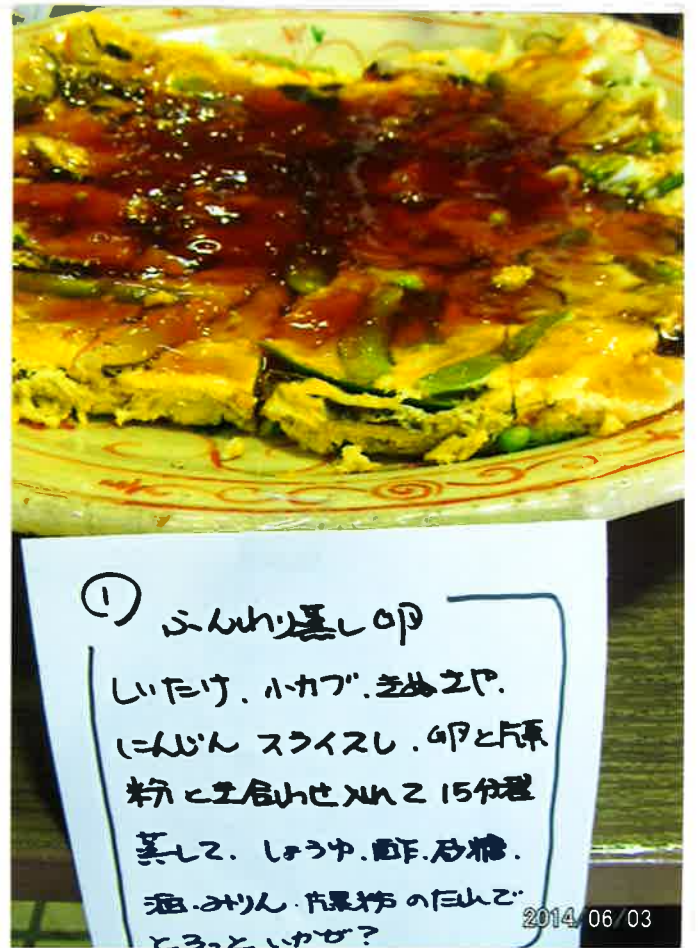 ①
ふんわり蒸し卵
しいたけ、小カブ、きぬさや、
にんじん スライスし、卵と片栗
粉と合わせ入れて15分程
蒸して、しょうゆ、酢、砂糖、
酒、みりん、片栗粉のたれで
とろっといかが？
2014/06/03